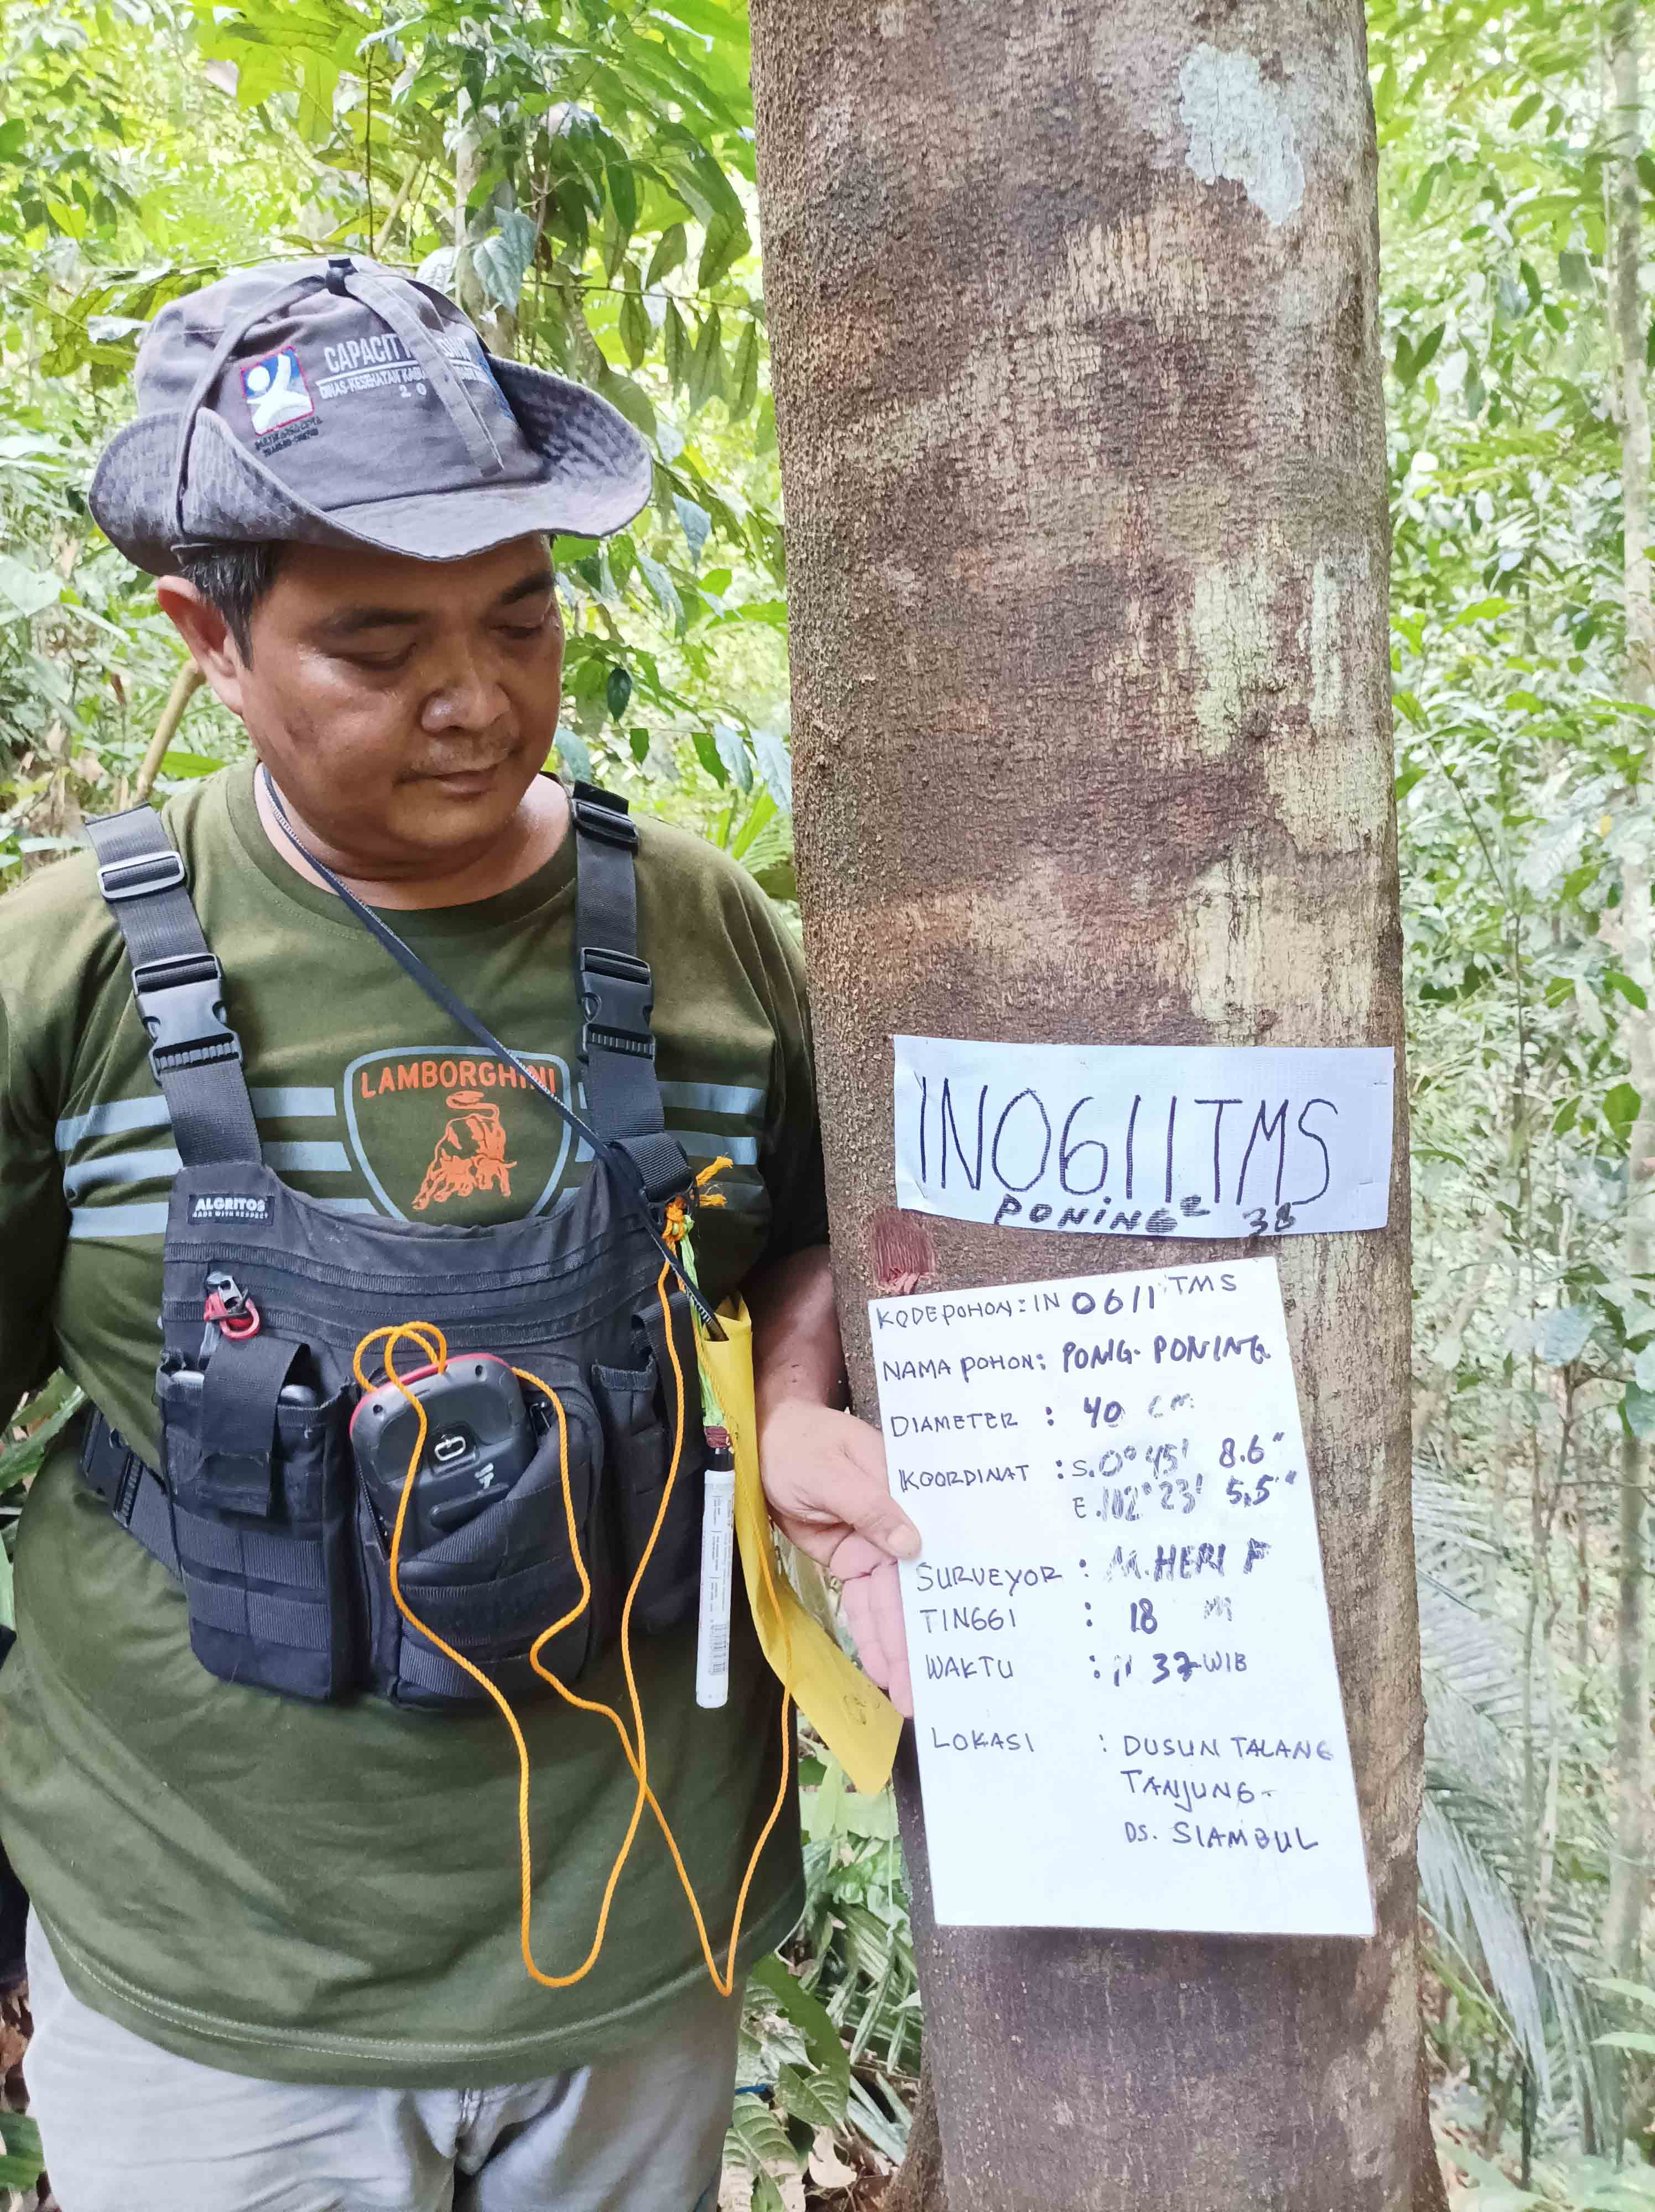 CAPACIT
DINAS KESEHATAN KABU
20
LAMBORGHINI
ALGRITOS
MADE WITH RESPECT
IN0611TMS
PONING² 38
KODE POHON : IN 0611 TMS
NAMA POHON : PONG-PONING
DIAMETER : 40 cm
KOORDINAT : S.0° 45' 8.6"
E.102° 23' 5.5"
SURVEYOR : M.HERI F
TINGGI : 18 m
WAKTU : 11 37 WIB
LOKASI : DUSUN TALANG
TANJUNG-
DS. SIAMBUL